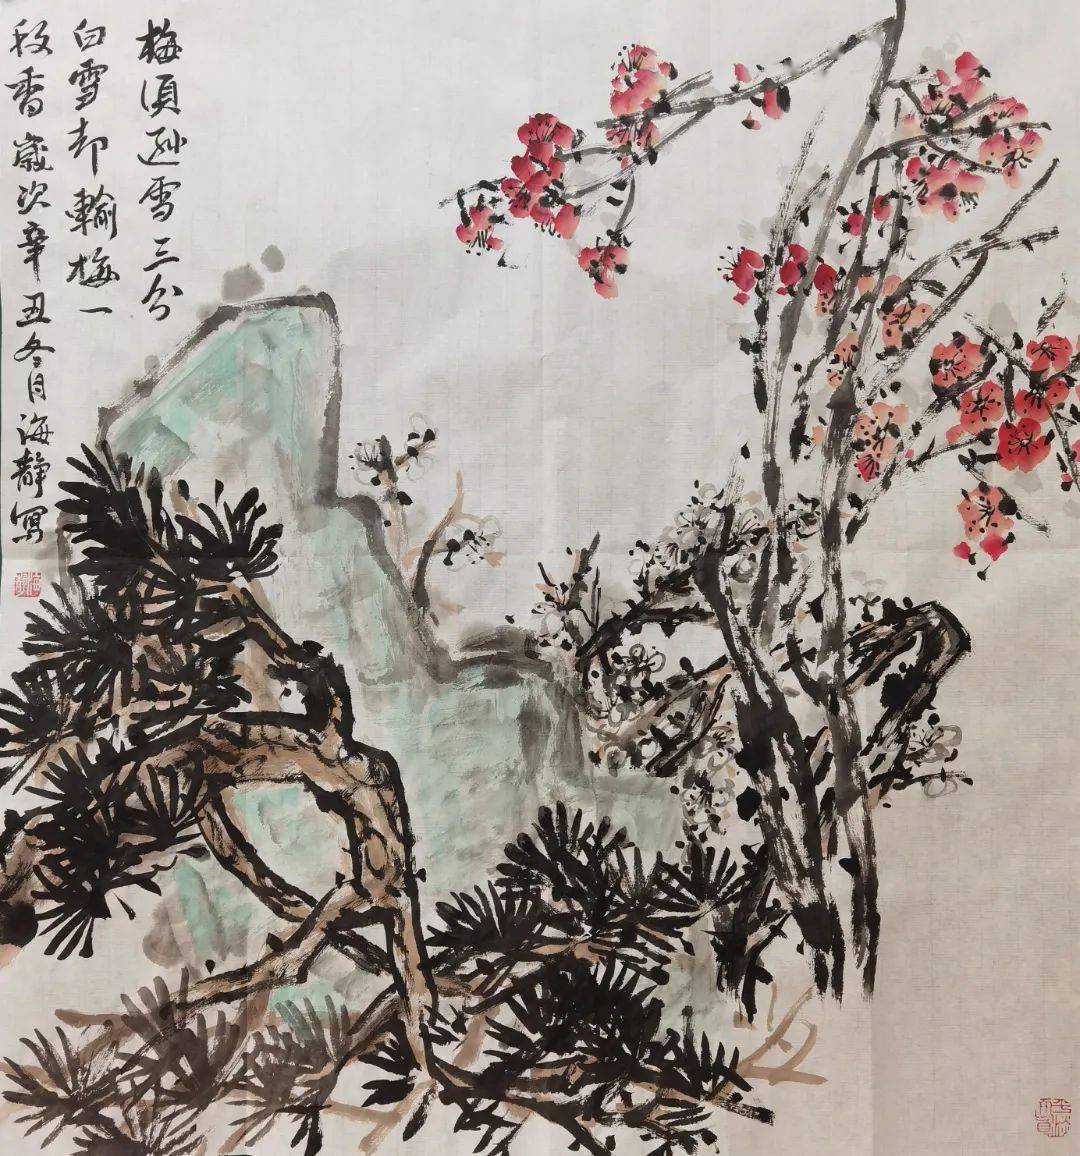 梅須遜雪三分
白雪却輸梅一
段香歲次辛丑冬月海静寫